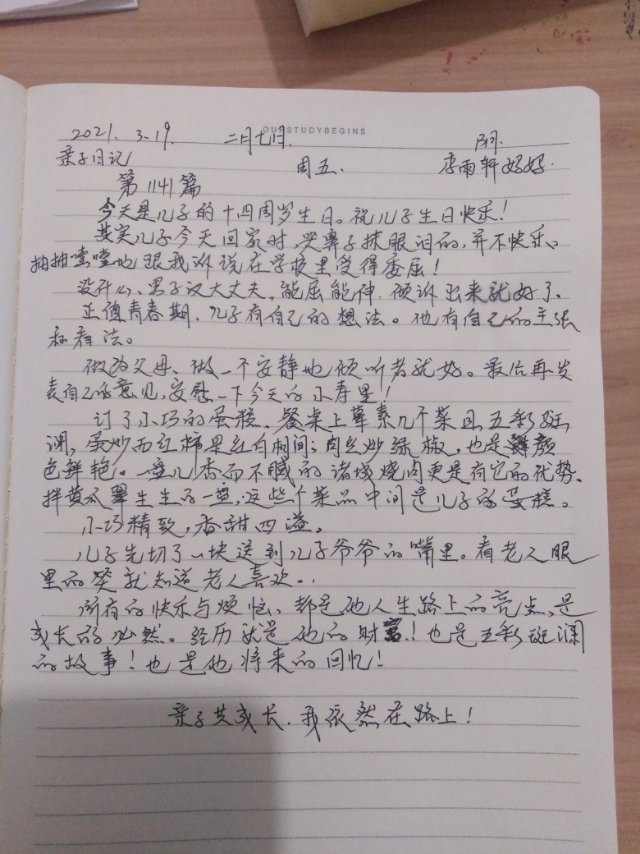 OUR STUDY BEGINS
2021. 3.19 二月七日. 阴.
亲子日记 周五. 李雨轩妈妈.
第1141篇
今天是儿子的十四周岁生日。祝儿子生日快乐！
其实儿子今天回家时,哭鼻子抹眼泪的,并不快乐。
抽抽噎噎地跟我诉说在学校里受得委屈！
没什么,男子汉大丈夫。能屈能伸,便诉出来就好了。
正值青春期,儿子有自己的想法。也有自己的主张
和看法。
做为父母、做一个安静地倾听者就好。最后再发
表自己的意见,安慰一下今天的小寿星！
订了小巧的蛋糕,餐桌上荤素几个菜且五彩斑
澜,蛋炒西红柿是红白相间；肉丝炒绿椒,也是鲜颜
色鲜艳。一盘儿香而不腻的诸城烧肉更是有它的优势、
拌黄 生生的一盘,这些个菜品中间是儿子的蛋糕。
小巧精致,香甜四溢。
儿子先切了一块送到儿子爷爷的嘴里。看老人眼
里的笑就知道老人喜欢。
所有的快乐与烦恼、都是他人生路上的亮点,是
成长的必然。经历就是他的财富！也是五彩斑澜
的故事！也是他将来的回忆！
亲子共成长.我依然在路上！